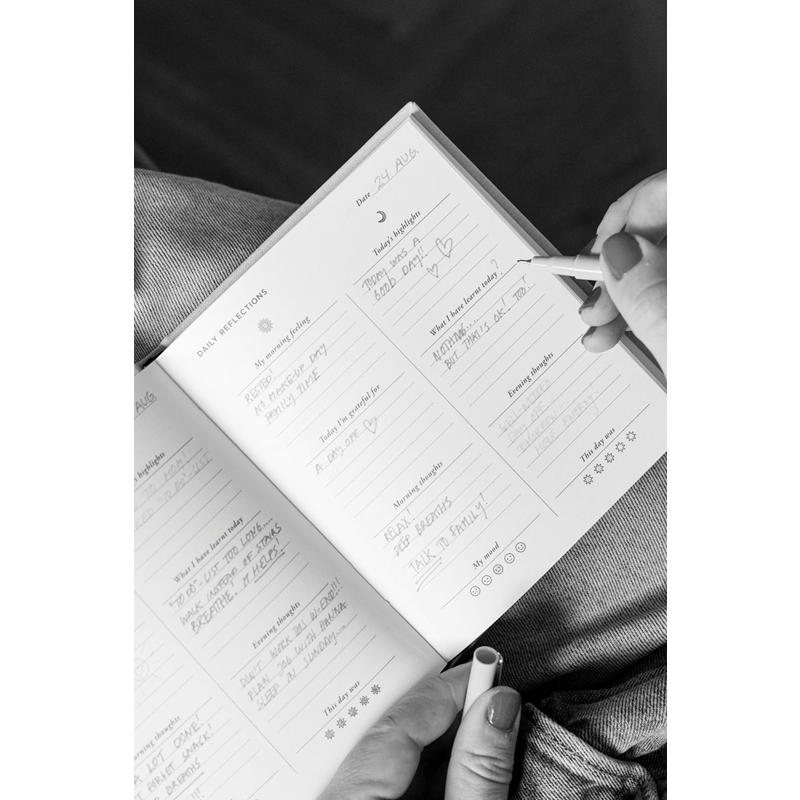 AUG.
highlights
TO MOM!
"TO DO"-LIST
What I have learnt today
"TO DO"-LIST TOO LONG....
WALK INSTEAD OF STAIRS
BREATHE. IT HELPS!
Evening thoughts
DON'T WORK THIS W-END!!!
PLAN JOG WITH HANNA
SLEEP IN SUNDAY....
This day was
thoughts
A LOT DONE!
FORGET SNACK!
BREATHS
DAILY REFLECTIONS
My morning feeling
RESTED!
NO MAKE-UP DAY
FAMILY TIME
Today I'm grateful for
A DAY OFF ♡
Morning thoughts
RELAX!
DEEP BREATHS
TALK TO FAMILY!
My mood
Date 24 AUG.
Today's highlights
TODAY WAS A
GOOD DAY!!
What I have learnt today?
NOTHING....
BUT THAT'S OK! TOO..!
Evening thoughts
This day was